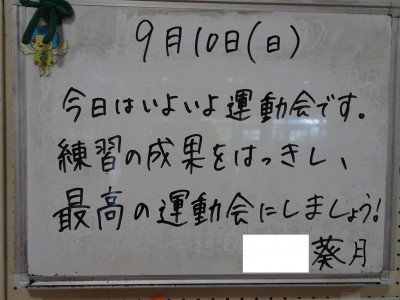 9月10日(日)
今日はいよいよ運動会です。
練習の成果をはっきし、
最高の運動会にしましょう!
葵月